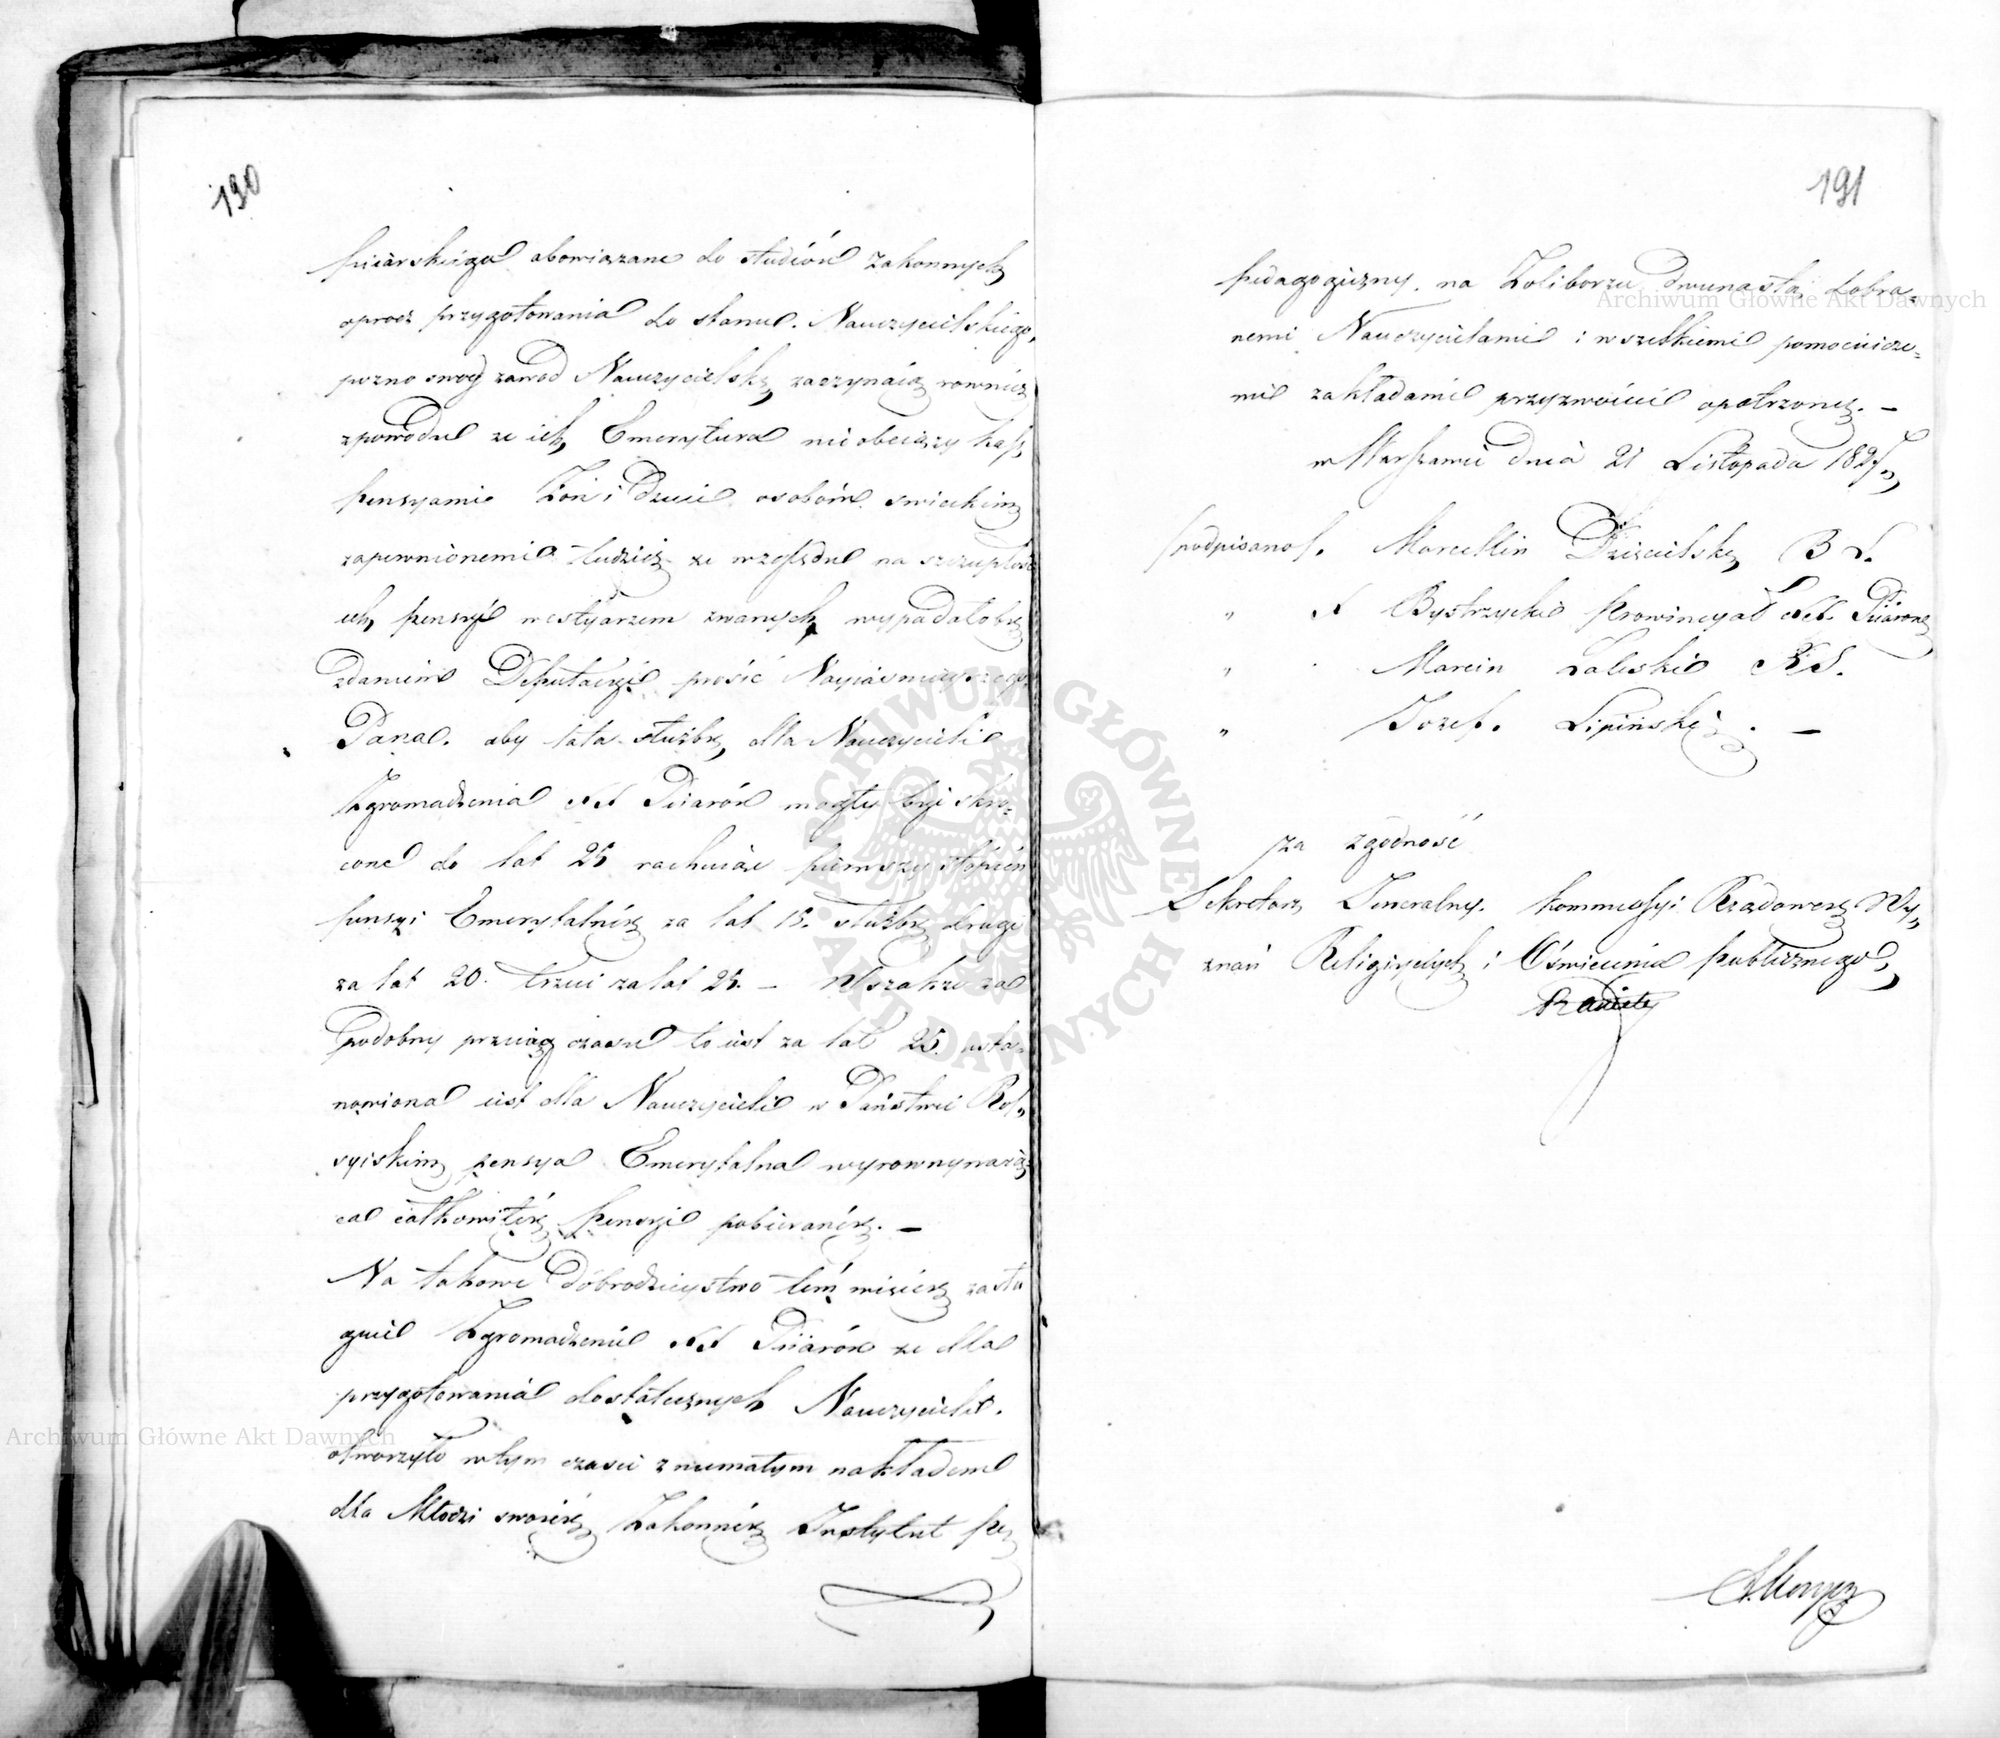 190
piiarskiego obowiązane do studiów zakonnych
oprocz przygotowania do stanu Nauczycielskiego,
pozno swoy zawod Nauczycielski zaczynaią rownież
z powodu ze ich Emerytura nie obciąży kass
pensyami Żon i Dzieci osobóm swieckim
zapewnionemi tudzież ze względu na szczupłość
ich pensyi westyarzem zwanych wypadałoby
zdaniem Deputacyi prosić Nayiasnieyszego
Pana. aby lata służby dla Nauczycieli
Zgromadzenia XX Piiarów mogły być skro=
cone do lat 25 rachuiąc pierwszy stopień
pensyi Emerytalnéy za lat 15. służby drugi
za lat 20. trzeci za lat 25. – Wszakze za
podobny przeciąg czasu to iest za lat 25. usta=
nowiona iest dla Nauczycieli w Państwie Ros=
syiskim pensya Emerytalna wyrownywaią=
ca całkowitéy pensyi pobieranéy. –
Na takowe dobrodzieystwo tém więcéy zasłu
guie Zgromadzenie XX Piiarów ze dla
przygotowania dostatecznych Nauczycieli.
otworzyło w tym czasie z niemałym nakładem
dla Młodzi swoiéy Zakonnéy Instytut pe
191
pedagogiczny. na Żoliborzu dwunastą dobra=
nemi Nauczycielami i wszelkiemi pomocnicze=
mi zakładami przyzwoicie opatrzony. –
w Warszawie dnia 21 Listopada 1827
(podpisano). Marcellin Dziecielski B L.
" X Bystrzycki Prowincyał XX. Piiarow
" Marcin Zaleski RS.
" Jozef. Lipiński. –
za zgodność
Sekretarz Jeneralny. Kommissyi Rządowey Wy=
znań Religiynych i Oświecenia Publicznego
Archiwum Główne Akt Dawnych
Archiwum Główne Akt Dawnych
ARCHIWUM GŁÓWNE AKT DAWNYCH